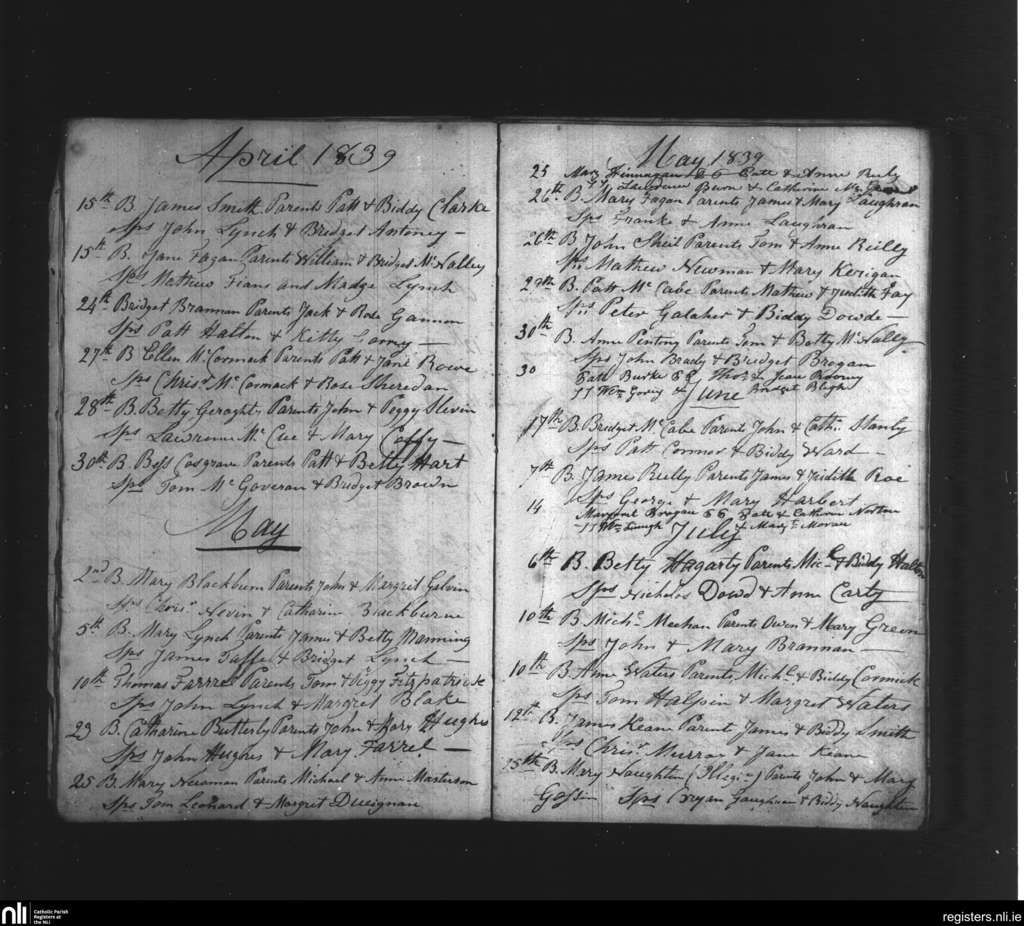 April 1839
15th B. James Smith Parents Patt & Biddy Clarke
Sps John Lynch & Bridget Antoney
15th B. Jane Fagan Parents William & Bridget McNalley
Sps Mathew Fians and Madge Lynch
24th Bridget Brannan Parents Jack & Rose Gannon
Sps Patt Halton & Kitty
27th B Ellen McCormack Parents Patt & Jane Rowe
Sps Chrisr. McCormack & Rose Sheredan
28th B. Betty Geraghty Parents John & Peggy Slevin
Sps Lawrence Mc Cue & Mary Coffy
30th B. Bess Cosgrave Parents Patt & Betty Hart
Sps Tom McGoveran & Bridget Brown
May
2nd B. Mary Blackburn Parents John & Margret Galvin
Sps Chrisr Nevin & Catharin Blackburne
5th B. Mary Lynch Parents James & Betty Manning
Sps James Taffe & Bridget Lynch
10th Thomas Farrrel Parents Tom & Peggy Fitzpatrick
Sps John Lynch & Margret Blake
23 B. Catharine Butterly Parents John & Mary Hughs
Sps John Hughes & Mary Farrel
25 B. Mary Newman Parents Michael & Anne Masterson
Sps Tom Leonard & Margret Dueignan
May 1839
25 Mary Finnagan Patt & Anne Rely
Lawrence & Catherine
26th B. Mary Fagan Parents James & Mary Laughran
Sps Franke & Anne Laughran
26th B John Sheil Parents Tom & Anne Reilly
Sps Mathew Newman & Mary Kerigan
29th B. Patt McCabe Parents Mathew & Judith Fay
Sps Peter Galaher & Biddy Dowde
30th B. Anne Penton Parents Tom & Betty McNally
Sps John Brady & Bridget Brogan
30 Patt Burke Thos & Jean Rooney
Wm & Bridget Bligh
June
17th B. Bridget McCabe Parent John & Cath: Stanly
Sps Patt Connor & Biddy Ward
7th B. James Reilly Parents James & Judith Roe
Sps George & Mary Harbert
14 Margret Brogan Patt & Catherine Norton
Wm & Mary Moran
July
6th B. Betty Hagarty Parents Mick & Biddy Halton
Sps Nicholos Dowd & Anne Carty
10th B Michl. Meehan Parents Owen & Mary Green
Sps John & Mary Brannan
10th B Anne Waters Parents Michl. & Biddy Cormick
Sps Tom Halpin & Margret Waters
12th B. James Keane Parent James & Biddy Smith
Sps Chrisr. Murrae & Jane Keane
25th B. Mary Naughten (Illegi-) Parents John & Mary
Goslin Sps Bryan Gaughran & Biddy Naughten
nli Catholic Parish
Registers at
the NLI
registers.nli.ie